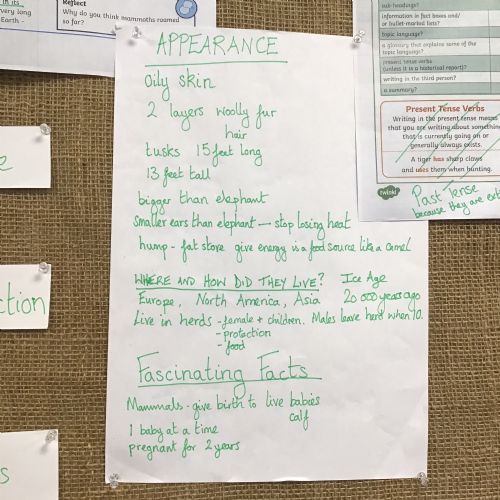 in its
very long
Earth -
Reflect
Why do you think mammoths roamed
so far?
sub-headings?
information in fact boxes and/
or bullet-marked lists?
topic language?
a glossary that explains some of the
topic language?
present tense verbs
(unless it is a historical report)?
writing in the third person?
a summary?
Present Tense Verbs
Writing in the present tense means
that you are writing about something
that is currently going on or
generally always exists.
A tiger has sharp claws
and uses them when hunting.
twinkl
Past Tense
because they are ext
APPEARANCE
Oily skin
2 layers woolly fur
hair
tusks 15 feet long
13 feet tall
bigger than elephant
smaller ears than elephant — stop losing heat
hump - fat store give energy is a food source like a camel
WHERE AND HOW DID THEY LIVE? Ice Age
Europe, North America, Asia 20 000 years ago
Live in herds - female + children. Males leave herd when 10.
- protection
- food
Fascinating Facts
Mammals - give birth to live babies
calf
1 baby at a time
pregnant for 2 years
e
ction
s